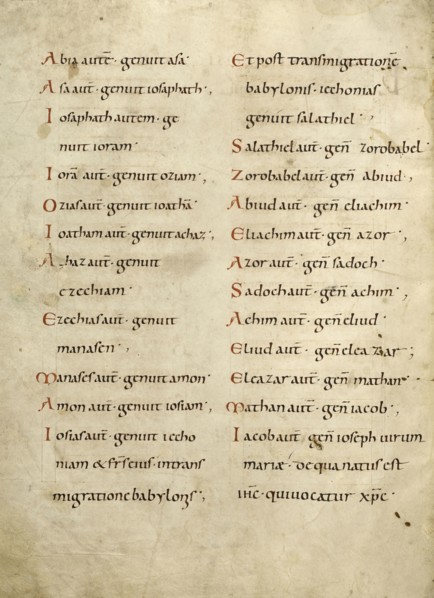 Abia autē · genuit asa ·
Asa aut̄ · genuit iosaphath ,
Iosaphath autem · ge
nuit ioram ·
Iorā aut̄ · genuit oziam ,
Ozias aut̄ · genuit ioathā ·
Ioatham aut̄ · genuit achaz ,
Achaz aut̄ · genuit
ezechiam ·
Ezechias aut̄ · genuit
manasen ,
Manases aut̄ · genuit amon ·
Amon aut̄ · genuit iosiam ,
Iosias aut̄ · genuit iecho
niam & fr̄s eius · in trans
migratione babylonis ,
Et post transmigrationē
babylonis · iechonias
genuit salathiel ,
Salathiel aut̄ · geñ zorobabel ·
Zorobabel aut̄ · geñ abiud ,
Abiud aut̄ · geñ eliachim ·
Eliachim aut̄ · geñ azor ,
Azor aut̄ · geñ sadoch ·
Sadoch aut̄ · geñ achim ,
Achim aut̄ · geñ eliud ·
Eliud aut̄ · geñ eleazar ;
Eleazar aut̄ · geñ mathan ·
Mathan aut̄ · geñ iacob ,
Iacob aut̄ geñ ioseph uirum
mariæ · de qua natus est
ih̄c · qui uocatur xp̄c ·